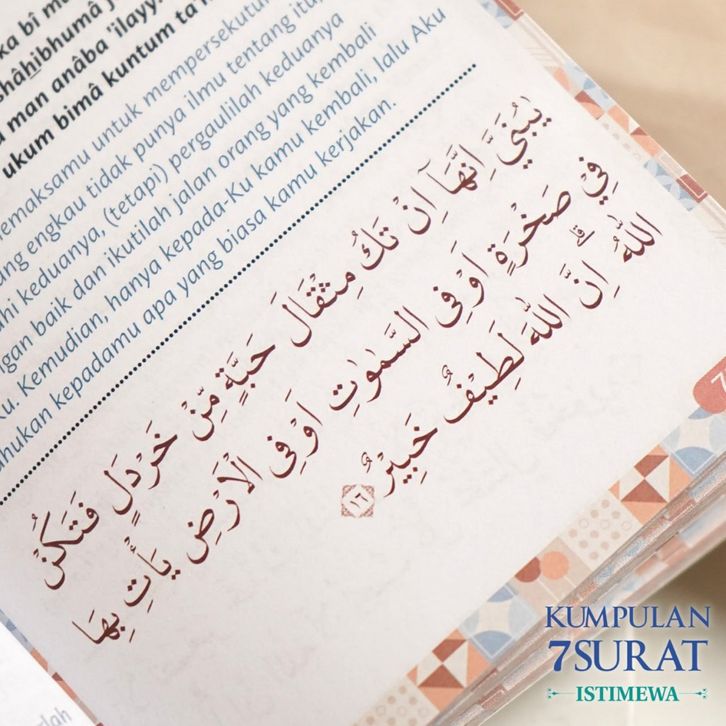 ka bi
shâhibhumâ
man anâba 'ilayy.
ukum bimâ kuntum
memaksamu untuk mempersekutu
engkau tidak punya ilmu tentang itu,
keduanya, (tetapi) pergaulilah keduanya
ngan baik dan ikutilah jalan orang yang kembali
Kemudian, hanya kepada-Ku kamu kembali, lalu Aku
kepadamu apa yang biasa kamu kerjakan.
يٰبُنَيَّ اِنَّهَآ اِنْ تَكُ مِثْقَالَ حَبَّةٍ مِّنْ خَرْدَلٍ فَتَكُنْ
فِيْ صَخْرَةٍ اَوْ فِى السَّمٰوٰتِ اَوْ فِى الْاَرْضِ يَأْتِ بِهَا
اللّٰهُ ۗاِنَّ اللّٰهَ لَطِيْفٌ خَبِيْرٌ ١٦
7
KUMPULAN
7SURAT
ISTIMEWA